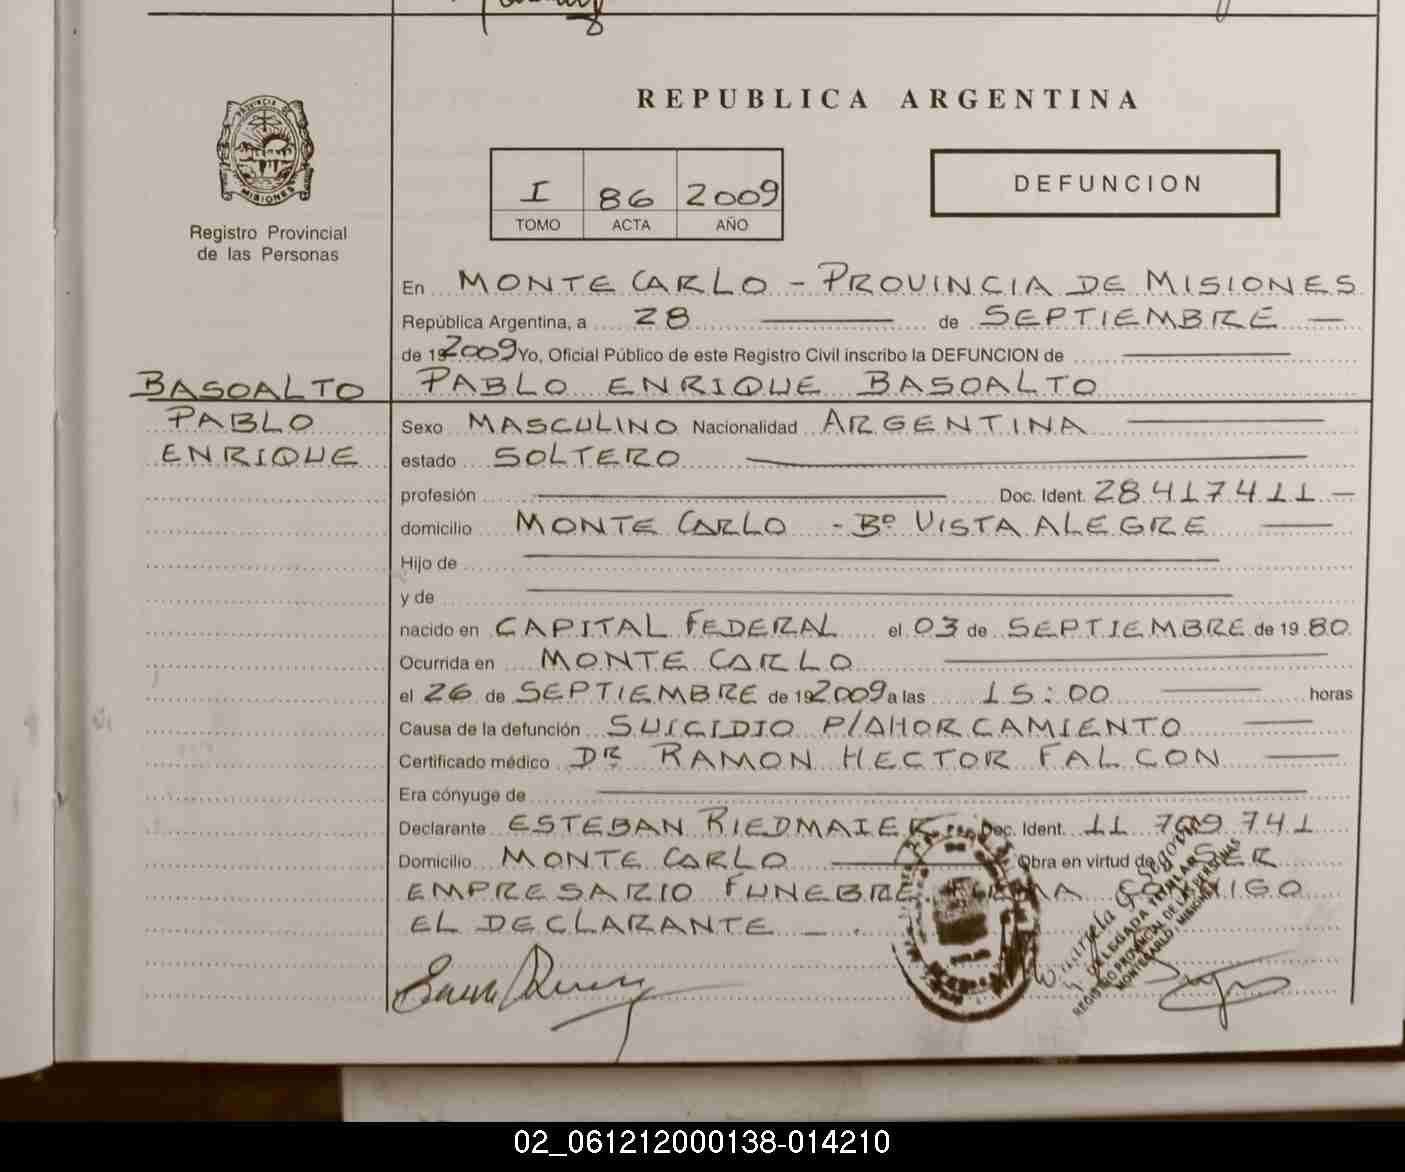 REPUBLICA ARGENTINA
PROVINCIA DE
MISIONES
Registro Provincial
de las Personas
I 86 2009
TOMO ACTA AÑO
DEFUNCION
En MONTE CARLO - PROVINCIA DE MISIONES
República Argentina, a 28 de SEPTIEMBRE
de 192009 Yo, Oficial Público de este Registro Civil inscribo la DEFUNCION de
PABLO ENRIQUE BASOALTO
BASOALTO
PABLO
ENRIQUE
Sexo MASCULINO Nacionalidad ARGENTINA
estado SOLTERO
profesión Doc. Ident. 28.417.411
domicilio MONTE CARLO - Bº VISTA ALEGRE
Hijo de
y de
nacido en CAPITAL FEDERAL el 03 de SEPTIEMBRE de 19 80
Ocurrida en MONTE CARLO
el 26 de SEPTIEMBRE de 192009 a las 15:00 horas
Causa de la defunción SUICIDIO P/AHORCAMIENTO
Certificado médico DR RAMON HECTOR FALCON
Era cónyuge de
Declarante ESTEBAN RIEDMAIER Doc. Ident. 11 709 741
Domicilio MONTE CARLO Obra en virtud de SER
EMPRESARIO FUNEBRE. FIRMA CONMIGO
EL DECLARANTE - .
DELEGADA TITULAR
REGISTRO PROVINCIAL DE LAS PERSONAS
MONTECARLO - MISIONES
02_061212000138-014210